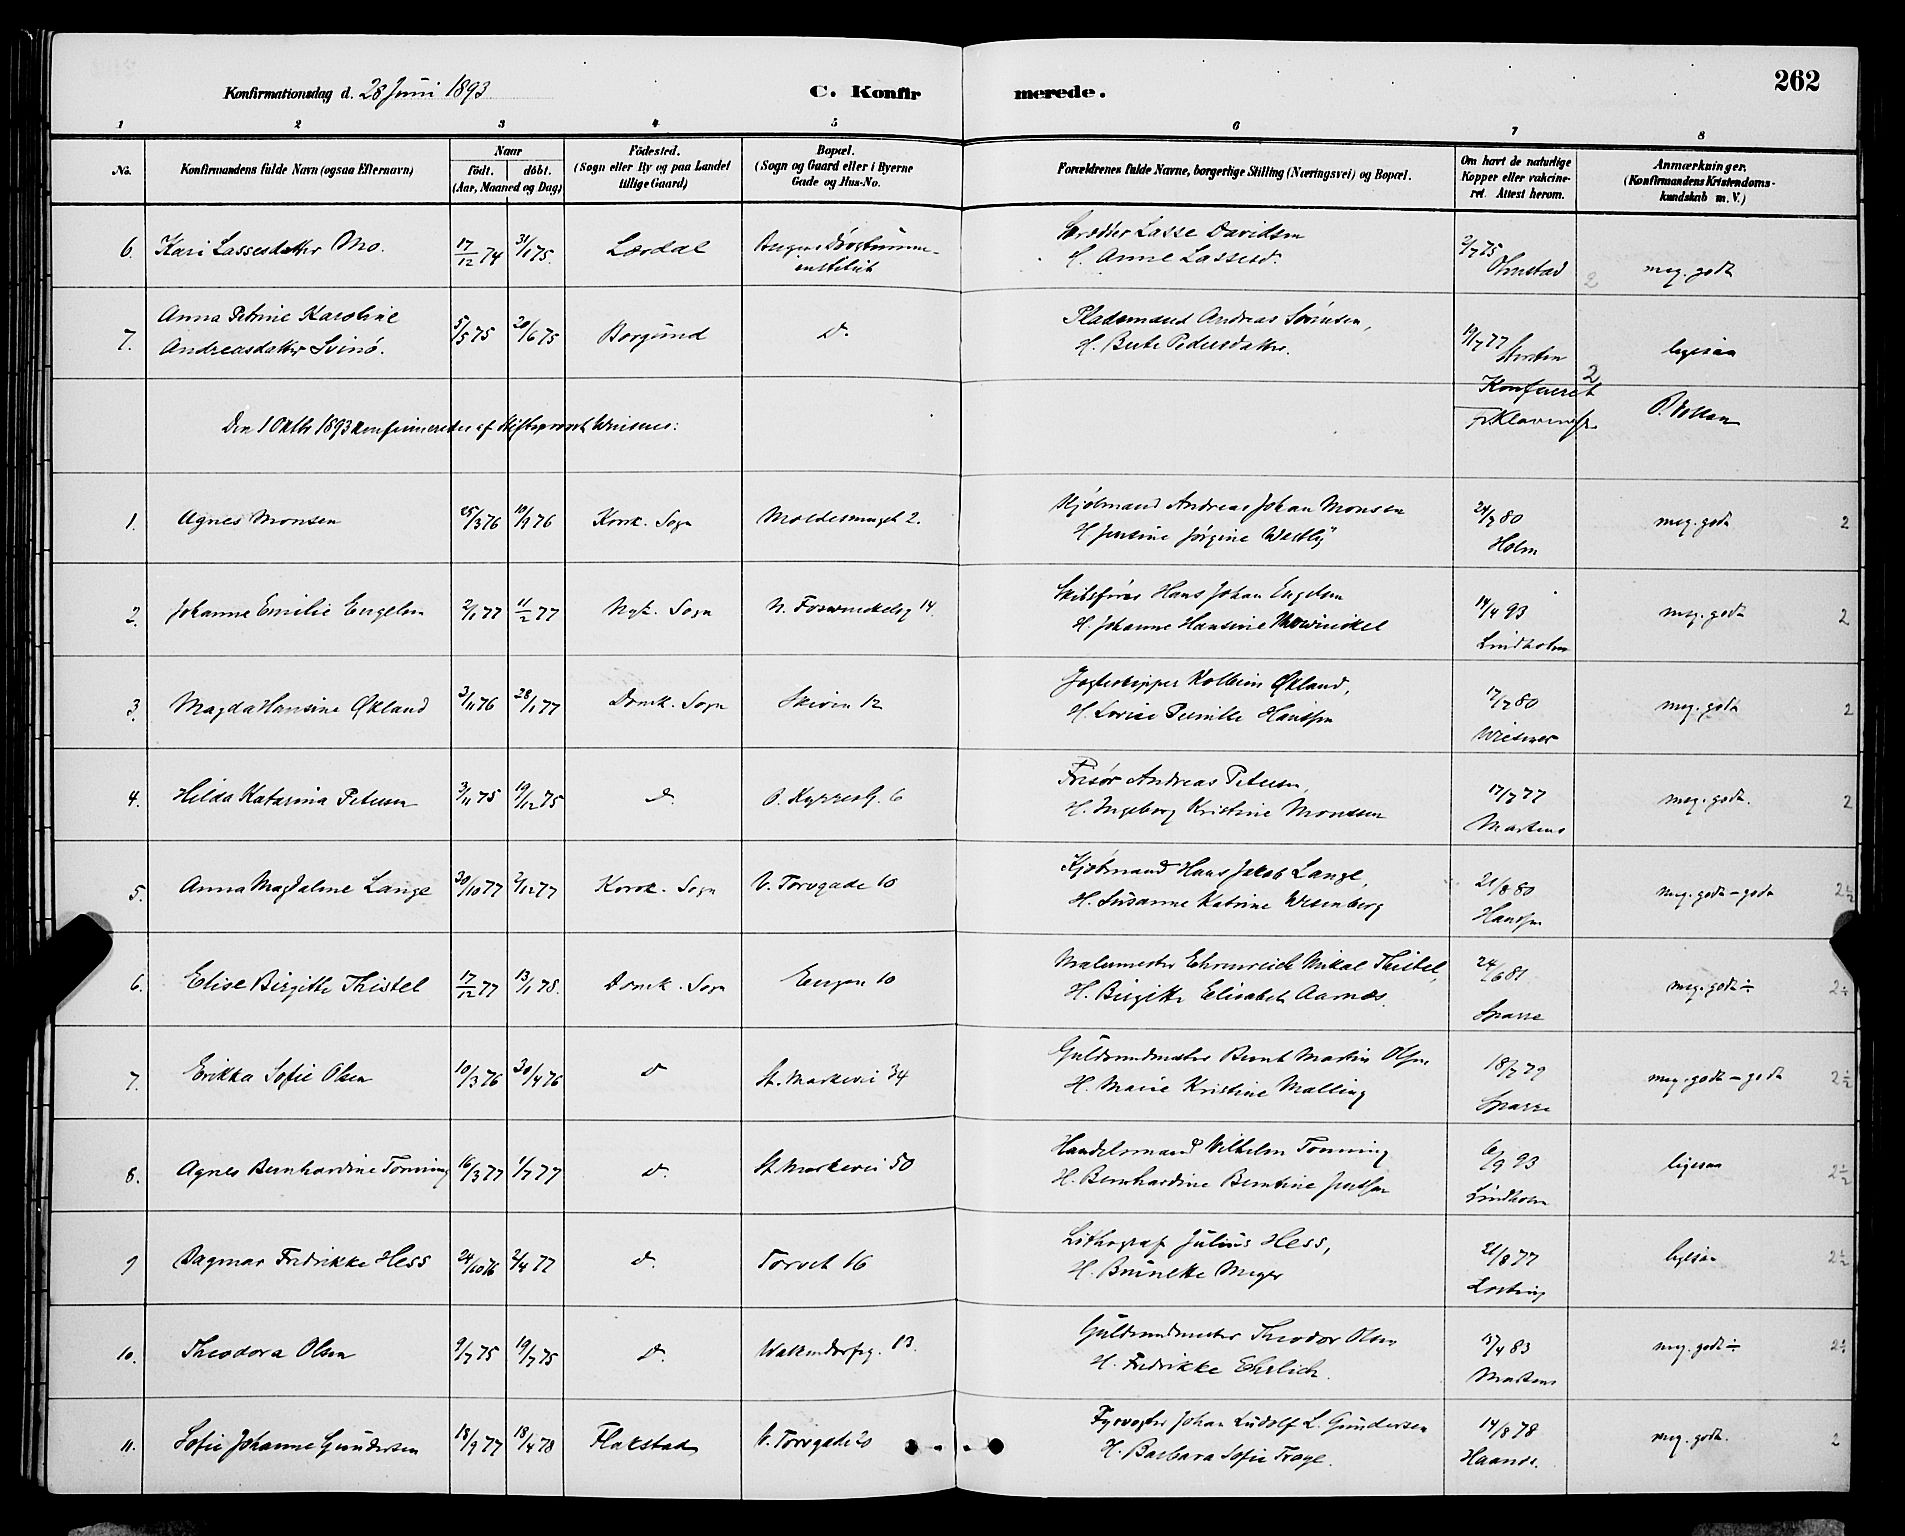 Konfirmationsdag d. 28 Juni 1893
C. Konfirmerede.
262
1 2 3 4 5 6 7 8
No.
Konfirmandens fulde Navn (ogsaa Efternavn)
Naar
födt. döbt.
(Aar, Maaned og Dag)
Födested.
(Sogn eller By og paa Landet
tillige Gaard)
Bopæl.
(Sogn og Gaard eller i Byerne
Gade og Hus-No.
Forældrenes fulde Navne, borgerlige Stilling (Næringsvei) og Bopæl.
Om havt de naturlige
Kopper eller vakcine-
ret. Attest herom.
Anmærkninger.
(Konfirmandens Kristendoms-
kundskab m. V.)
6. Kari Lassesdatter Mo. 17/12 74 31/1 75. Lærdal
institut
Lasse Davidsen
H. Anne Lassesd.
2/7 75
Ohnstad
meg. godt
2
7. Anna Petrine Karoline
Andreasdatter Svinø. 5/5 75 20/6 75 Borgund d.
Pladsmand Andreas Sørensen,
H. Berte Pedersdatter.
19/7 77
ligesaa
2
Konfereret
P. Vollan
Den 1 Oktbr 1893 konfirmeredes af Stiftsprovst Wriesner:
1. Agnes Monsen 25/3 76 76 Kork. Sogn Moldesmuget 2.
Andreas Johan Monsen
H. Jensine Jørgine Westby
24/7 80
Holm
meg. godt 2
2. Johanne Emilie Engelsen 2/1 77 11/2 77 Nyk. Sogn 14.
Skibsfører Hans Johan Engelsen
H. Johanne Hansine Mowinckel
14/4 93
Lindholm
meg. godt 2
3. Magda Hansine Økland 3/11 76 28/1 77 Domk. Sogn Skiven 12
Jagteskipper Kolbein Økland,
H. Lovise Pernille Hanssen
17/7 80
Wriesner
meg. godt 2
4. Hilda Katarina Petersen 3/11 75 19/12 75 d. O. Kyrresg. 6
Frisør Andreas Petersen,
H. Ingeborg Kristine Monssen
17/7 77
Martens
meg. godt. 2
5. Anna Magdalene Lange 30/10 77 2/12 77 Kork. Sogn V. Torvgade 10
Kjøbmand Hans Jakob Lange,
H. Susanne Katrine Wesenberg
21/8 80
Hansson
meg. godt – godt 2½
6. Elise Birgitte Thistel 17/12 77 13/1 78. Domk. Sogn Engen 10
Malermester Ehrenreich Mikal Thistel,
H. Birgitte Elisabeth Aarnæs.
24/6 81
Sparre
meg. godt ÷
7. Erikka Sofie Olsen 10/3 76 30/4 76 d St. Markevei 34
Guldsmedmester Bernt Martin Olsen
H. Marie Kristine Malling
18/7 79
Sparre
meg. godt – godt 2½
8. Agnes Bernhardine Tønning 16/3 77 1/7 77 d. St. Markevei 50
Handelsmand Vilhelm Tønning
H. Bernhardine Berntine Jentsen
6/9 93
Lindholm
ligesaa 2½
9 Dagmar Fredrikke Hess 24/10 76 2/4 77 d. Torvet 16
Lithograf Julius Hess,
H. Brunette Meyer
21/8 77
ligesaa 2½
10. Theodora Olsen 9/7 75 19/7 75 d. Walkendorfsg. 13.
Guldsmedmester Theodor Olsen
H. Fredrikke Ehrlich.
83
Martens
meg. godt ÷
11. Sofie Johanne Gundersen 18/9 77 18/4 78 Flakstad V. Torvgade 20
Fyrvogter Johan Ludolf L. Gundersen
H. Barbara Sofie Troye.
14/8 78
meg. godt. 2